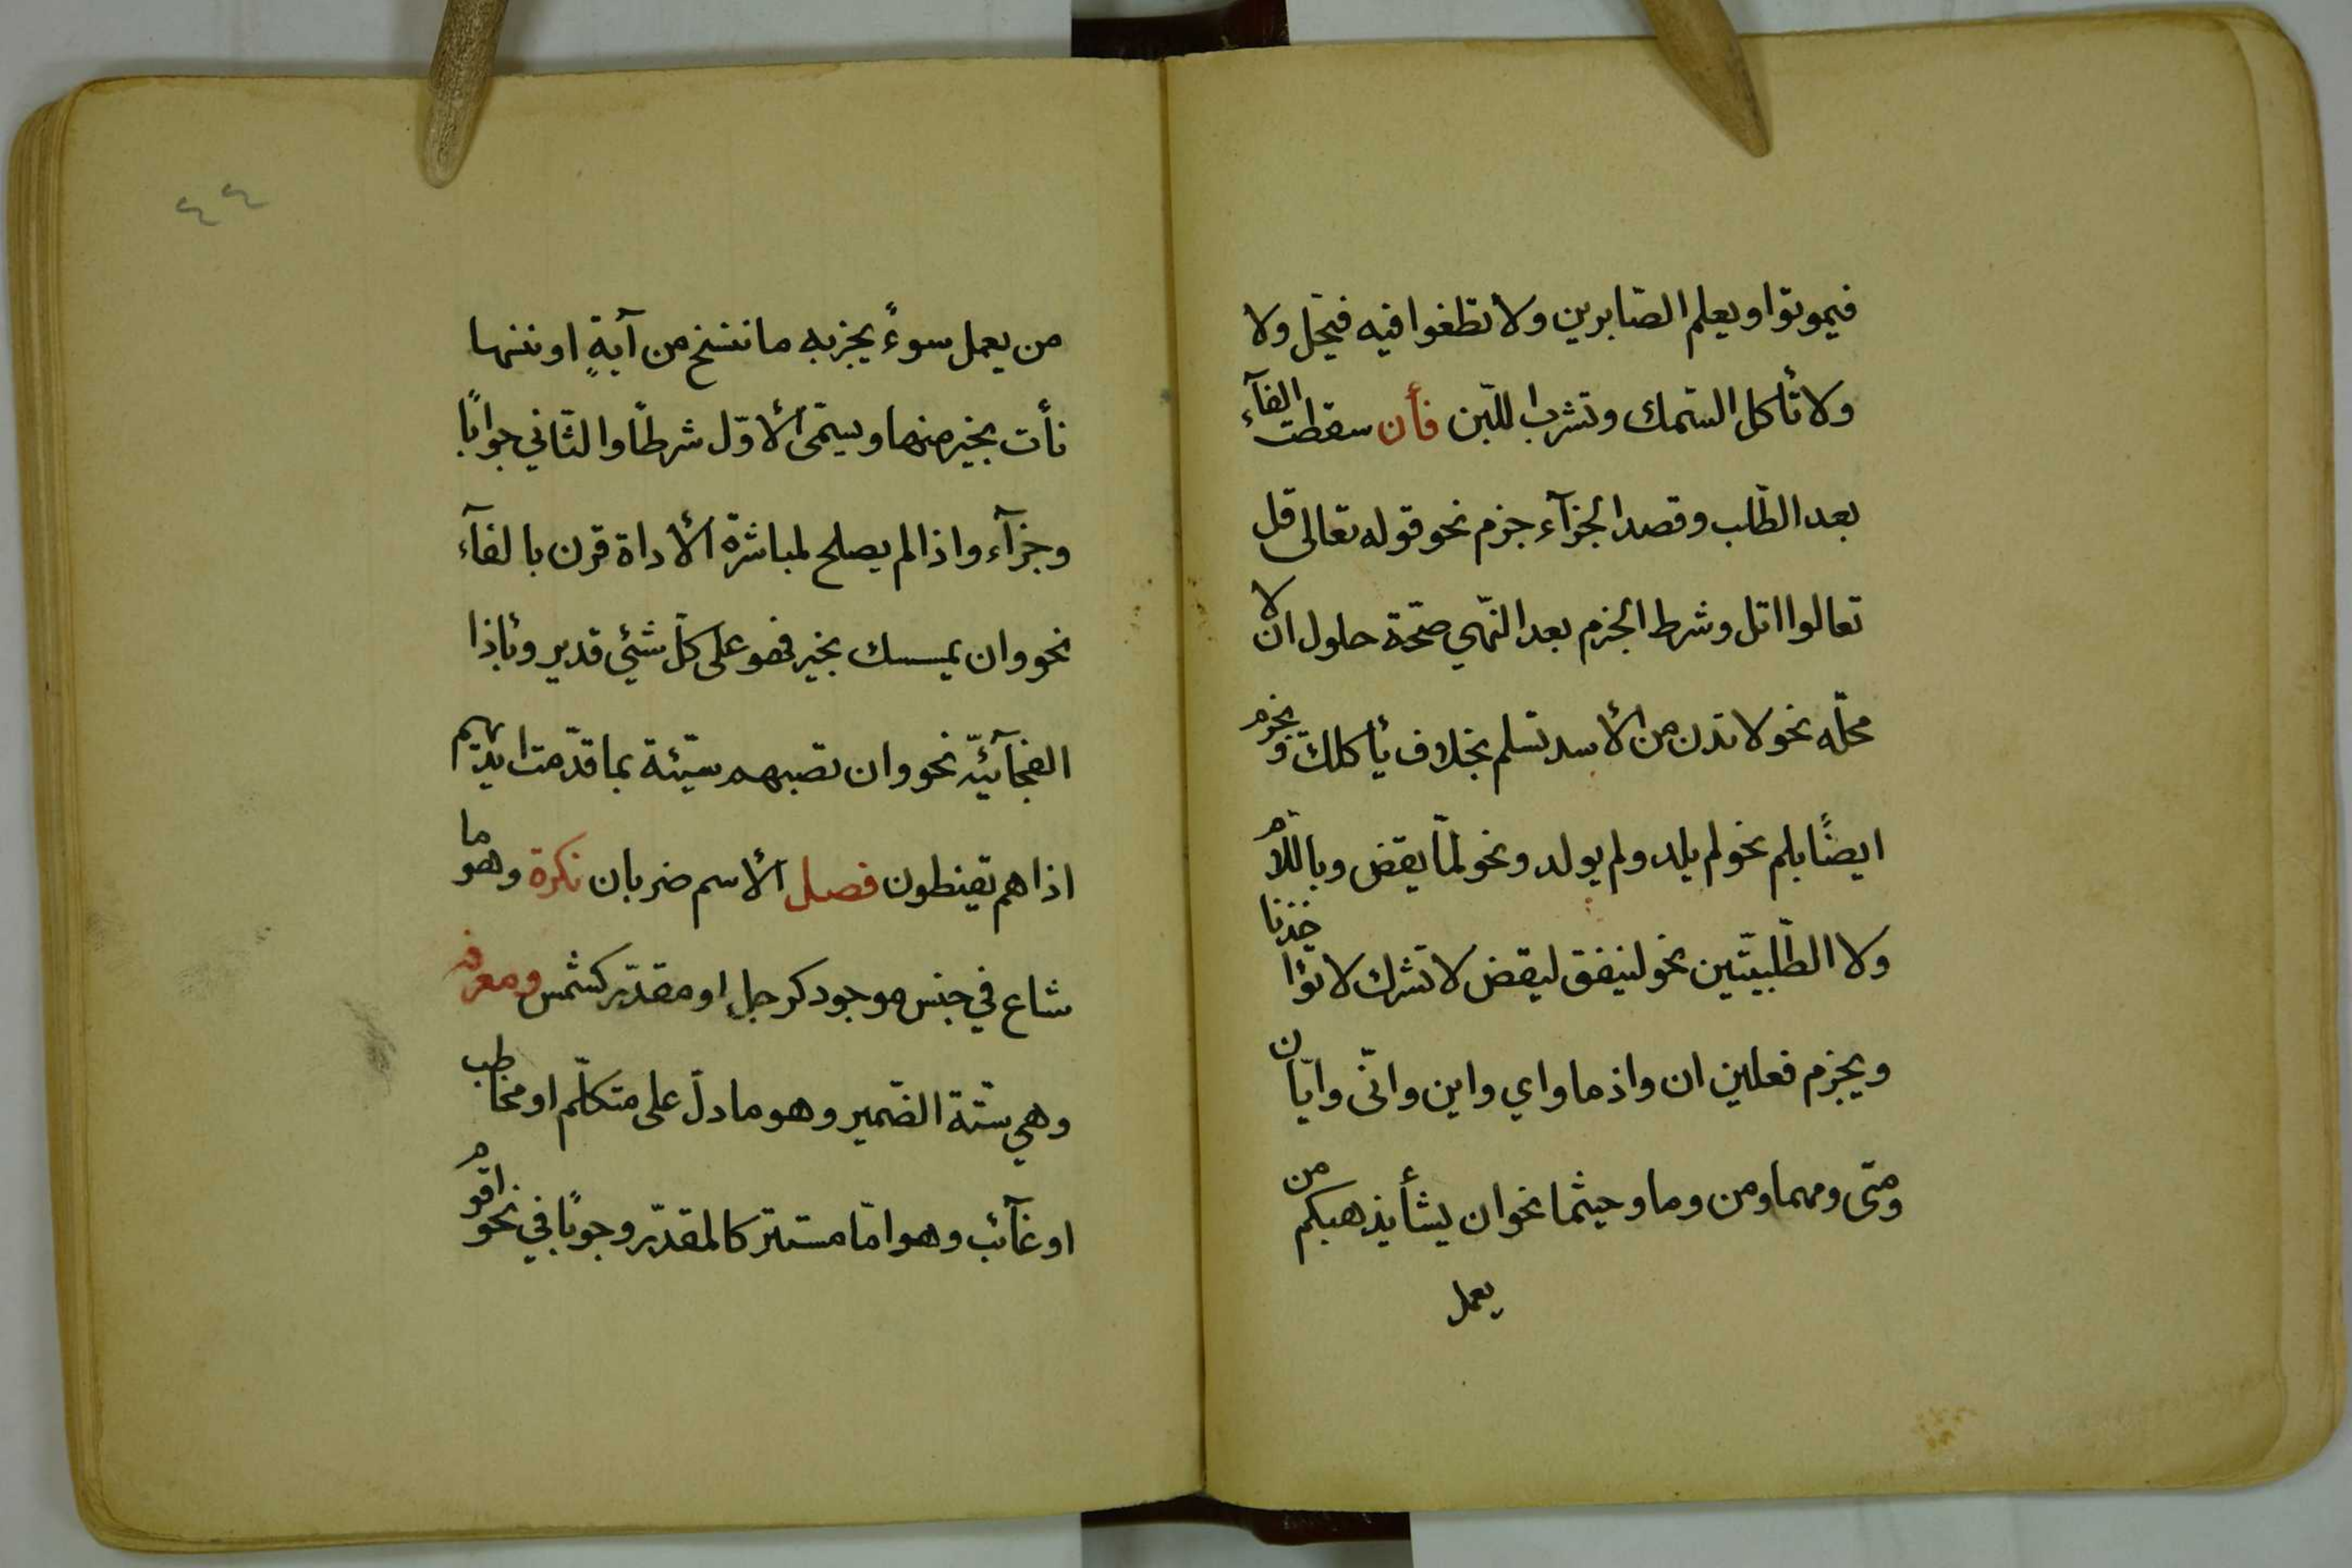 فيموتوا ويعلم الصّابرين ولا تطغوا فيه فيحلّ ولا
ولا تأكل السّمك وتشرب اللّبن فأن سقطت الفآء
بعد الطّلب وقصد الجزآء جزم نحو قوله تعالى قل
تعالوا اتل وشرط الجزم بعد النّهي صحّة حلول ان لا
محلّه نحو لا تدن من الأسد تسلم بخلاف يأكلك ويجزم
ايضًا بلم نحو لم يلد ولم يولد ونحو لمّا يقض وباللّام
ولا الطّلبيّتين نحو لينفق ليقض لا تشرك لا تؤاخذنا
ويجزم فعلين ان واذما واي واين وانّى وايّان
ومتى ومهما ومن وما وحيثما نحو ان يشأ يذهبكم من
يعمل
٤٤
من يعمل سوءً يجز به ما ننسخ من آيةٍ او ننسها
نأت بخير منها ويسمّى الأوّل شرطًا والثّاني جوابًا
وجزآء واذا لم يصلح لمباشرة الأداة قرن بالفآء
نحو وان يمسسك بخير فهو على كلّ شئي قدير وبأذا
الفجآئيّه نحو وان تصبهم سيّئة بما قدّمت ايديهم
اذا هم يقنطون فصل الأسم ضربان نكرة وهو ما
شاع في جنس موجود كرجل او مقدّر كشمس ومعرفه
وهي ستّة الضّمير وهو ما دلّ على متكلّم او مخاطب
او غآئب وهو امّا مستتر كالمقدّر وجوبًا في نحو اقوم